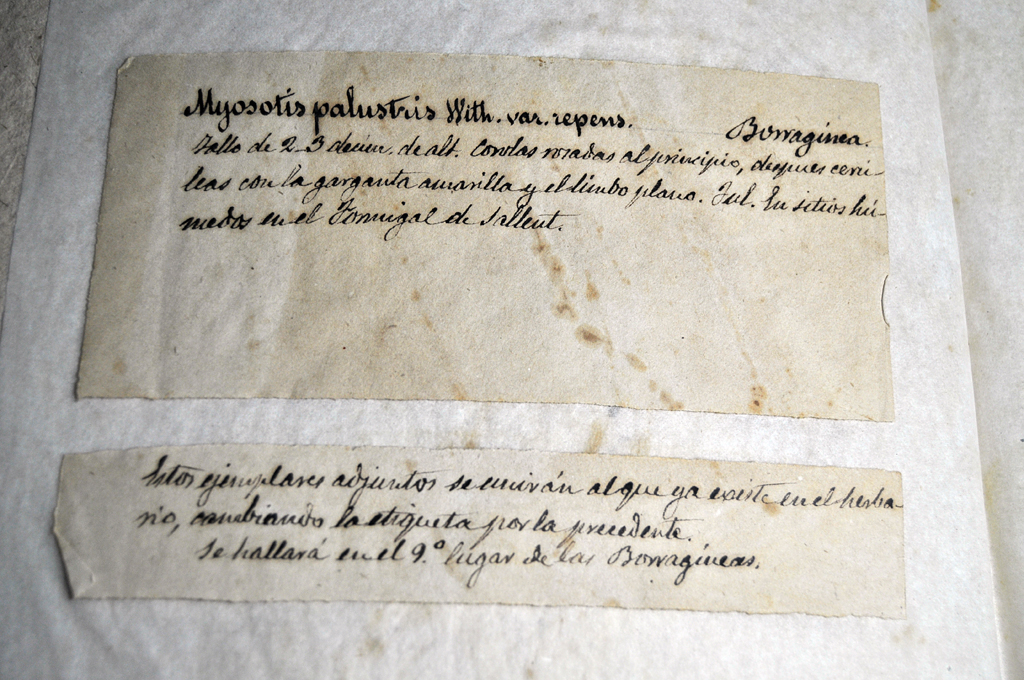 Myosotis palustris With. var. repens.
Borraginea.
Tallo de 2-3 decím. de alt. Corolas rosadas al principio, despues cerú-
leas con la garganta amarilla y el limbo plano. Jul. En sitios hú-
medos en el Formigal de Sallent.
Estos ejemplares adjuntos se unirán al que ya existe en el herba-
rio, cambiando la etiqueta por la precedente.
Se hallará en el 9.º lugar de las Borragíneas.